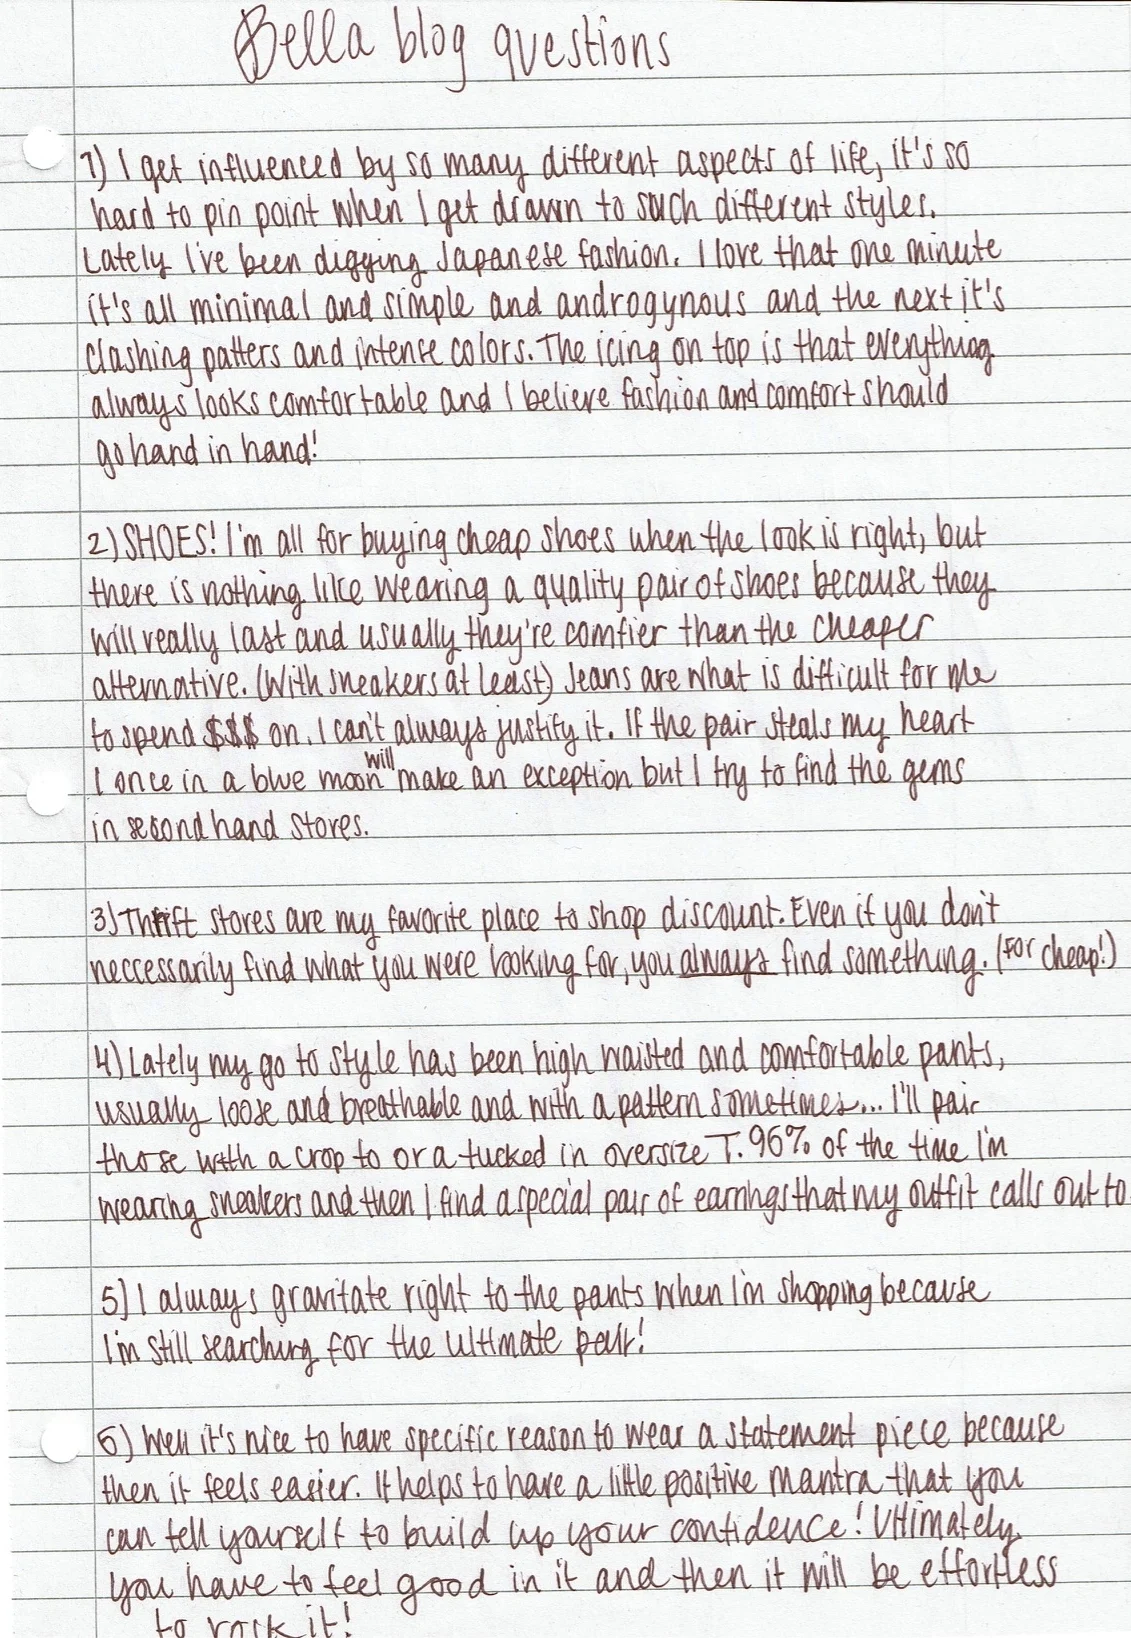 Bella blog questions
1) I get influenced by so many different aspects of life, it's so
hard to pin point when I get drawn to such different styles.
Lately I've been digging Japanese fashion. I love that one minute
it's all minimal and simple and androgynous and the next it's
clashing patters and intense colors. The icing on top is that everything
always looks comfortable and I believe fashion and comfort should
go hand in hand!
2) SHOES! I'm all for buying cheap shoes when the look is right, but
there is nothing like wearing a quality pair of shoes because they
will really last and usually they're comfier than the cheaper
alternative. (With sneakers at least) Jeans are what is difficult for me
to spend $$$ on. I can't always justify it. If the pair steals my heart
I once in a blue moon will make an exception but I try to find the gems
in second hand stores.
3) Thrift stores are my favorite place to shop discount. Even if you don't
neccessarily find what you were looking for, you always find something. (For cheap!)
4) Lately my go to style has been high waisted and comfortable pants,
usually loose and breathable and with a pattern sometimes... I'll pair
those with a crop to or a tucked in oversize T. 96% of the time I'm
wearing sneakers and then I find a special pair of earrings that my outfit calls out to
5) I always gravitate right to the pants when I'm shopping because
I'm still searching for the ultimate pair!
6) Well it's nice to have specific reason to wear a statement piece because
then it feels easier. It helps to have a little positive mantra that you
can tell yourself to build up your confidence! Ultimately
you have to feel good in it and then it will be effortless
to rock it!